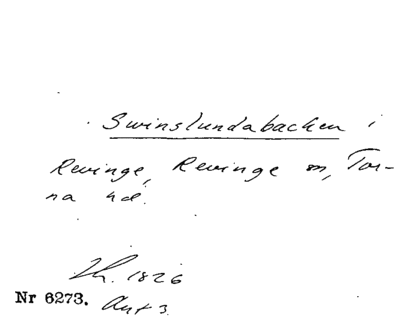 Swinslundabacken i
Revinge, Revinge sn, Tor-
na hd.
Th. 1826
Nr 6273. Ant 3.